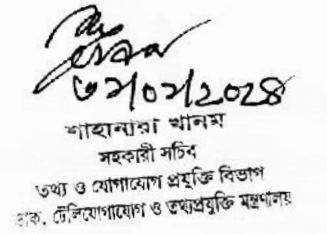 ৩১/০১/২০২৪
শাহানারা খানম
সহকারী সচিব
তথ্য ও যোগাযোগ প্রযুক্তি বিভাগ
ডাক, টেলিযোগাযোগ ও তথ্যপ্রযুক্তি মন্ত্রণালয়